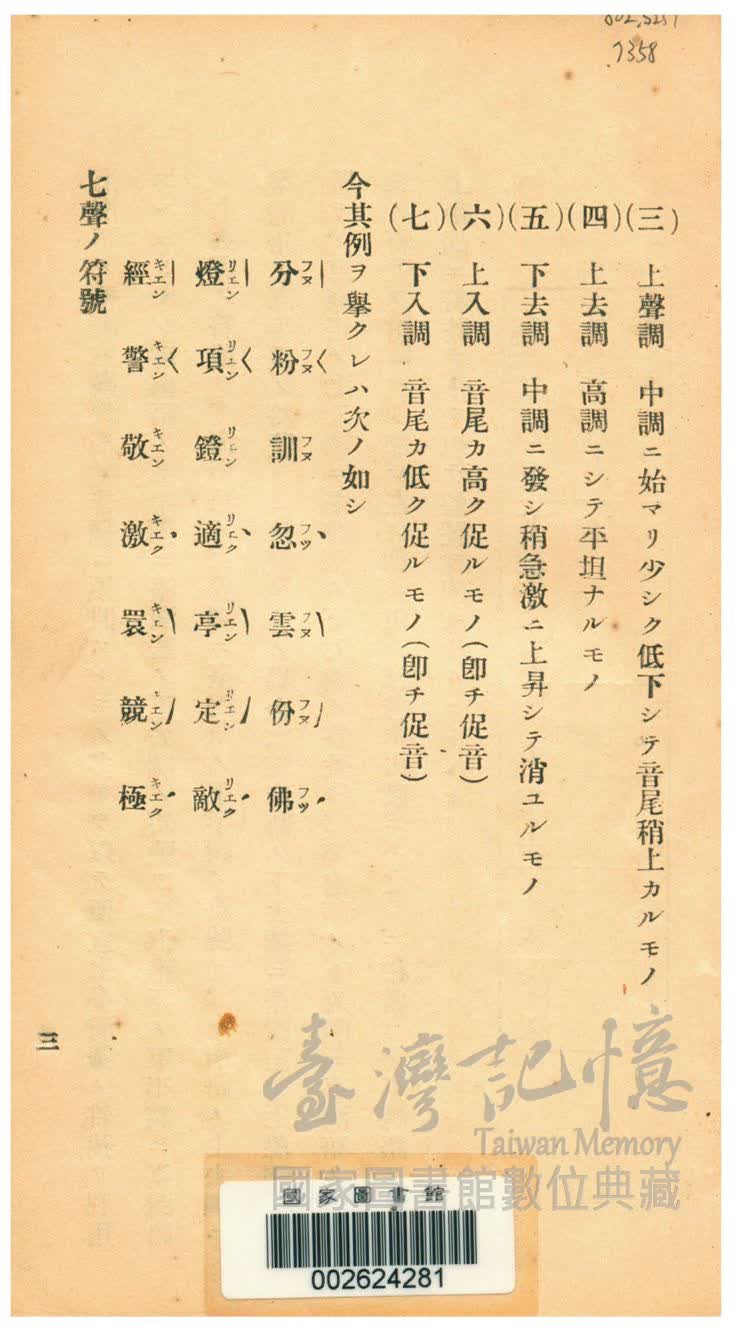 7358
(三) 上聲調 中調ニ始マリ少シク低下シテ音尾稍上カルモノ
(四) 上去調 高調ニシテ平坦ナルモノ
(五) 下去調 中調ニ發シ稍急激ニ上昇シテ消ユルモノ
(六) 上入調 音尾カ高ク促ルモノ(卽チ促音)
(七) 下入調 音尾カ低ク促ルモノ(卽チ促音)
今其例ヲ擧クレハ次ノ如シ
分フヌ| 粉フヌ〈 訓フヌ 忽フッ、 雲フヌ\ 份フヌ/ 佛フッ・
燈リェン| 項リェン〈 鐙リェン 適リェク、 亭リエン\ 定リエン/ 敵リエク・
經キエン| 警キエン〈 敬キエン 激キエク・ 睘キェン\ 競エン/ 極キエク・
七聲ノ符號
三
臺灣記憶
Taiwan Memory
國家圖書館數位典藏
國家圖書館
002624281